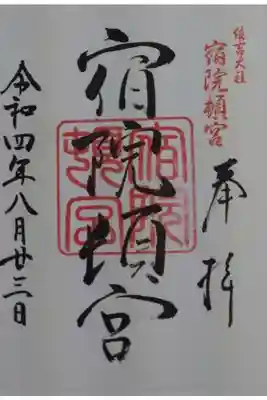 住吉大社
宿院頓宮
奉拝
宿院頓宮
宿院頓宮
令和四年八月廿三日